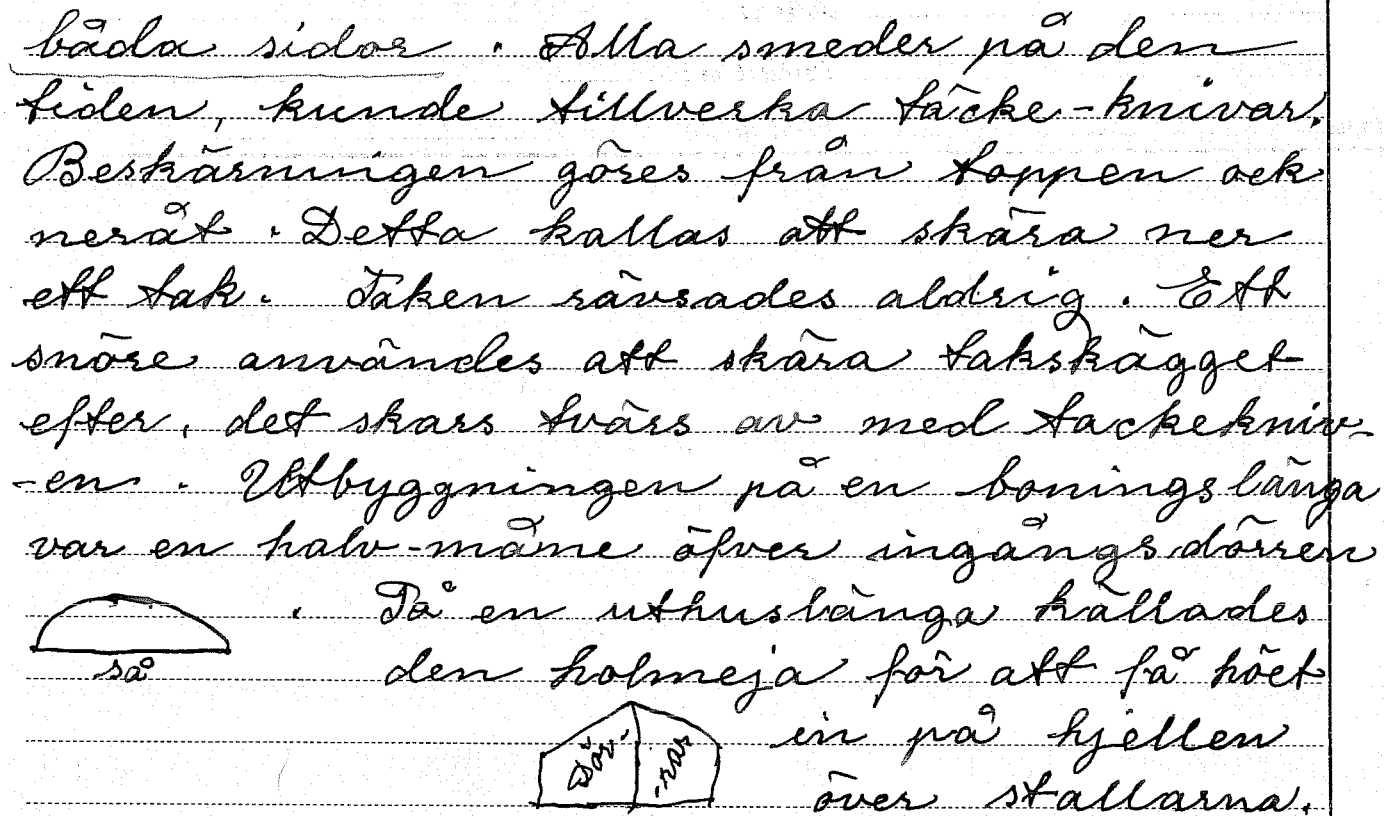 båda sidor . Alla smeder på den
tiden, kunde tillverka täcke-knivar.
Beskärningen göres från toppen ock
neråt . Detta kallas att skära ner
ett tak. Taken rävsades aldrig. Ett
snöre användes att skära takskägget
efter, det skars tvärs av med tackekniv-
-en . Utbyggningen på en boningslänga
var en halv-måne öfver ingångsdörren
. På en uthuslänga kallades
så
den holmeja för att få höet
in på hjellen
Dör-
-rar
över stallarna.